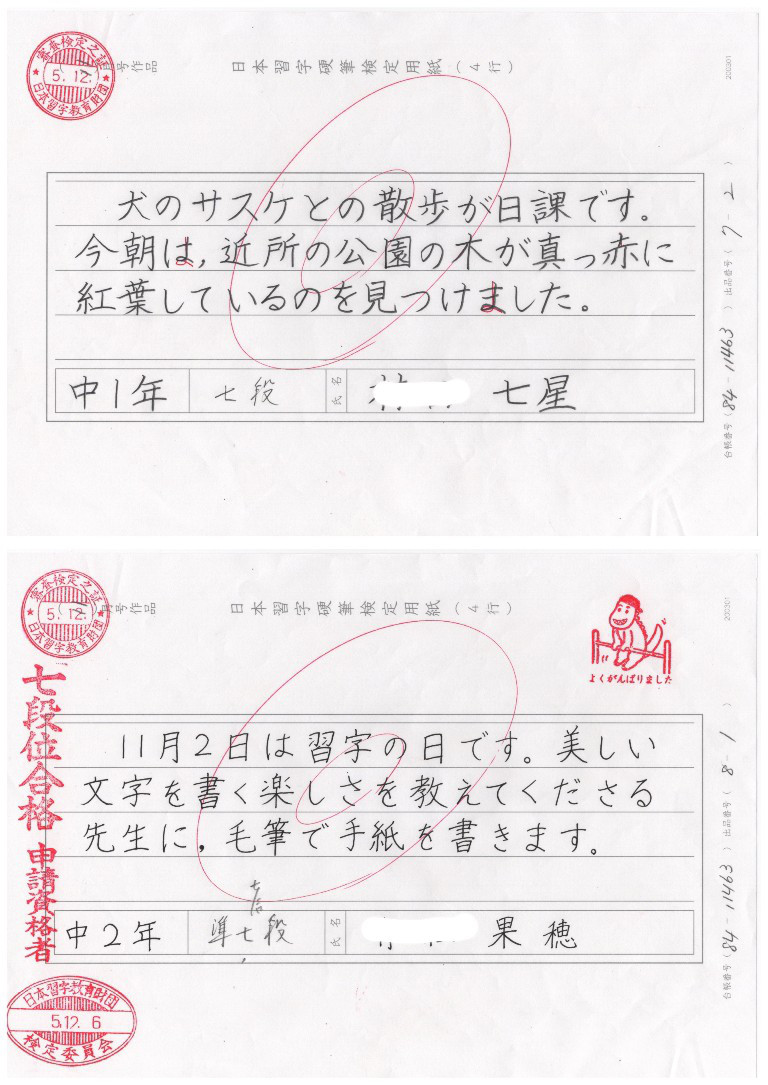 審査検定之証
5.12.
日本習字教育財団
月号作品
日本習字硬筆検定用紙(4行)
200301
犬のサスケとの散歩が日課です。
今朝は,近所の公園の木が真っ赤に
紅葉しているのを見つけました。
中1年
七段
氏名
七星
台帳番号(84-11463)出品番号(7-2)
審査検定之証
5.12.
日本習字教育財団
月号作品
日本習字硬筆検定用紙(4行)
200301
よくがんばりました
七段位合格 申請資格者
11月2日は習字の日です。美しい
文字を書く楽しさを教えてくださる
先生に,毛筆で手紙を書きます。
中2年
準七段
氏名
果穂
台帳番号(84-11463)出品番号(8-1)
日本習字教育財団
5.12.6
検定委員会